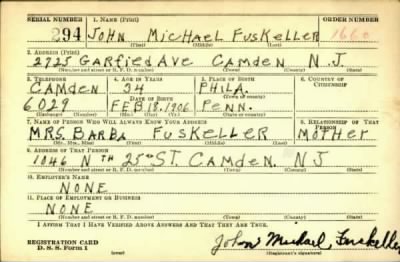 SERIAL NUMBER 1. NAME (Print) ORDER NUMBER
294 JOHN MICHAEL FUSKELLER 1660
(First) (Middle) (Last)
2. ADDRESS (Print)
2725 GARFIED AVE CAMDEN N.J.
(Number and street or R. F. D. number) (Town) (County) (State)
3. TELEPHONE 4. AGE IN YEARS 5. PLACE OF BIRTH 6. COUNTRY OF CITIZENSHIP
CAMDEN 34 PHILA.
DATE OF BIRTH (Town or county)
6029 FEB 18.1906 PENN.
(Exchange) (Number) (Mo.) (Day) (Yr.) (State or country)
7. NAME OF PERSON WHO WILL ALWAYS KNOW YOUR ADDRESS 8. RELATIONSHIP OF THAT PERSON
MRS. BARBA FUSKELLER MOTHER
(Mr., Mrs., Miss) (First) (Middle) (Last)
9. ADDRESS OF THAT PERSON
1046 NTH 25TH ST. CAMDEN. NJ
(Number and street or R. F. D. number) (Town) (County) (State)
10. EMPLOYER'S NAME
NONE
11. PLACE OF EMPLOYMENT OR BUSINESS
NONE
(Number and street or R. F. D. number) (Town) (County) (State)
I AFFIRM THAT I HAVE VERIFIED ABOVE ANSWERS AND THAT THEY ARE TRUE.
REGISTRATION CARD
D. S. S. Form 1 (over) John Michael Fuskeller
(Registrant's signature)